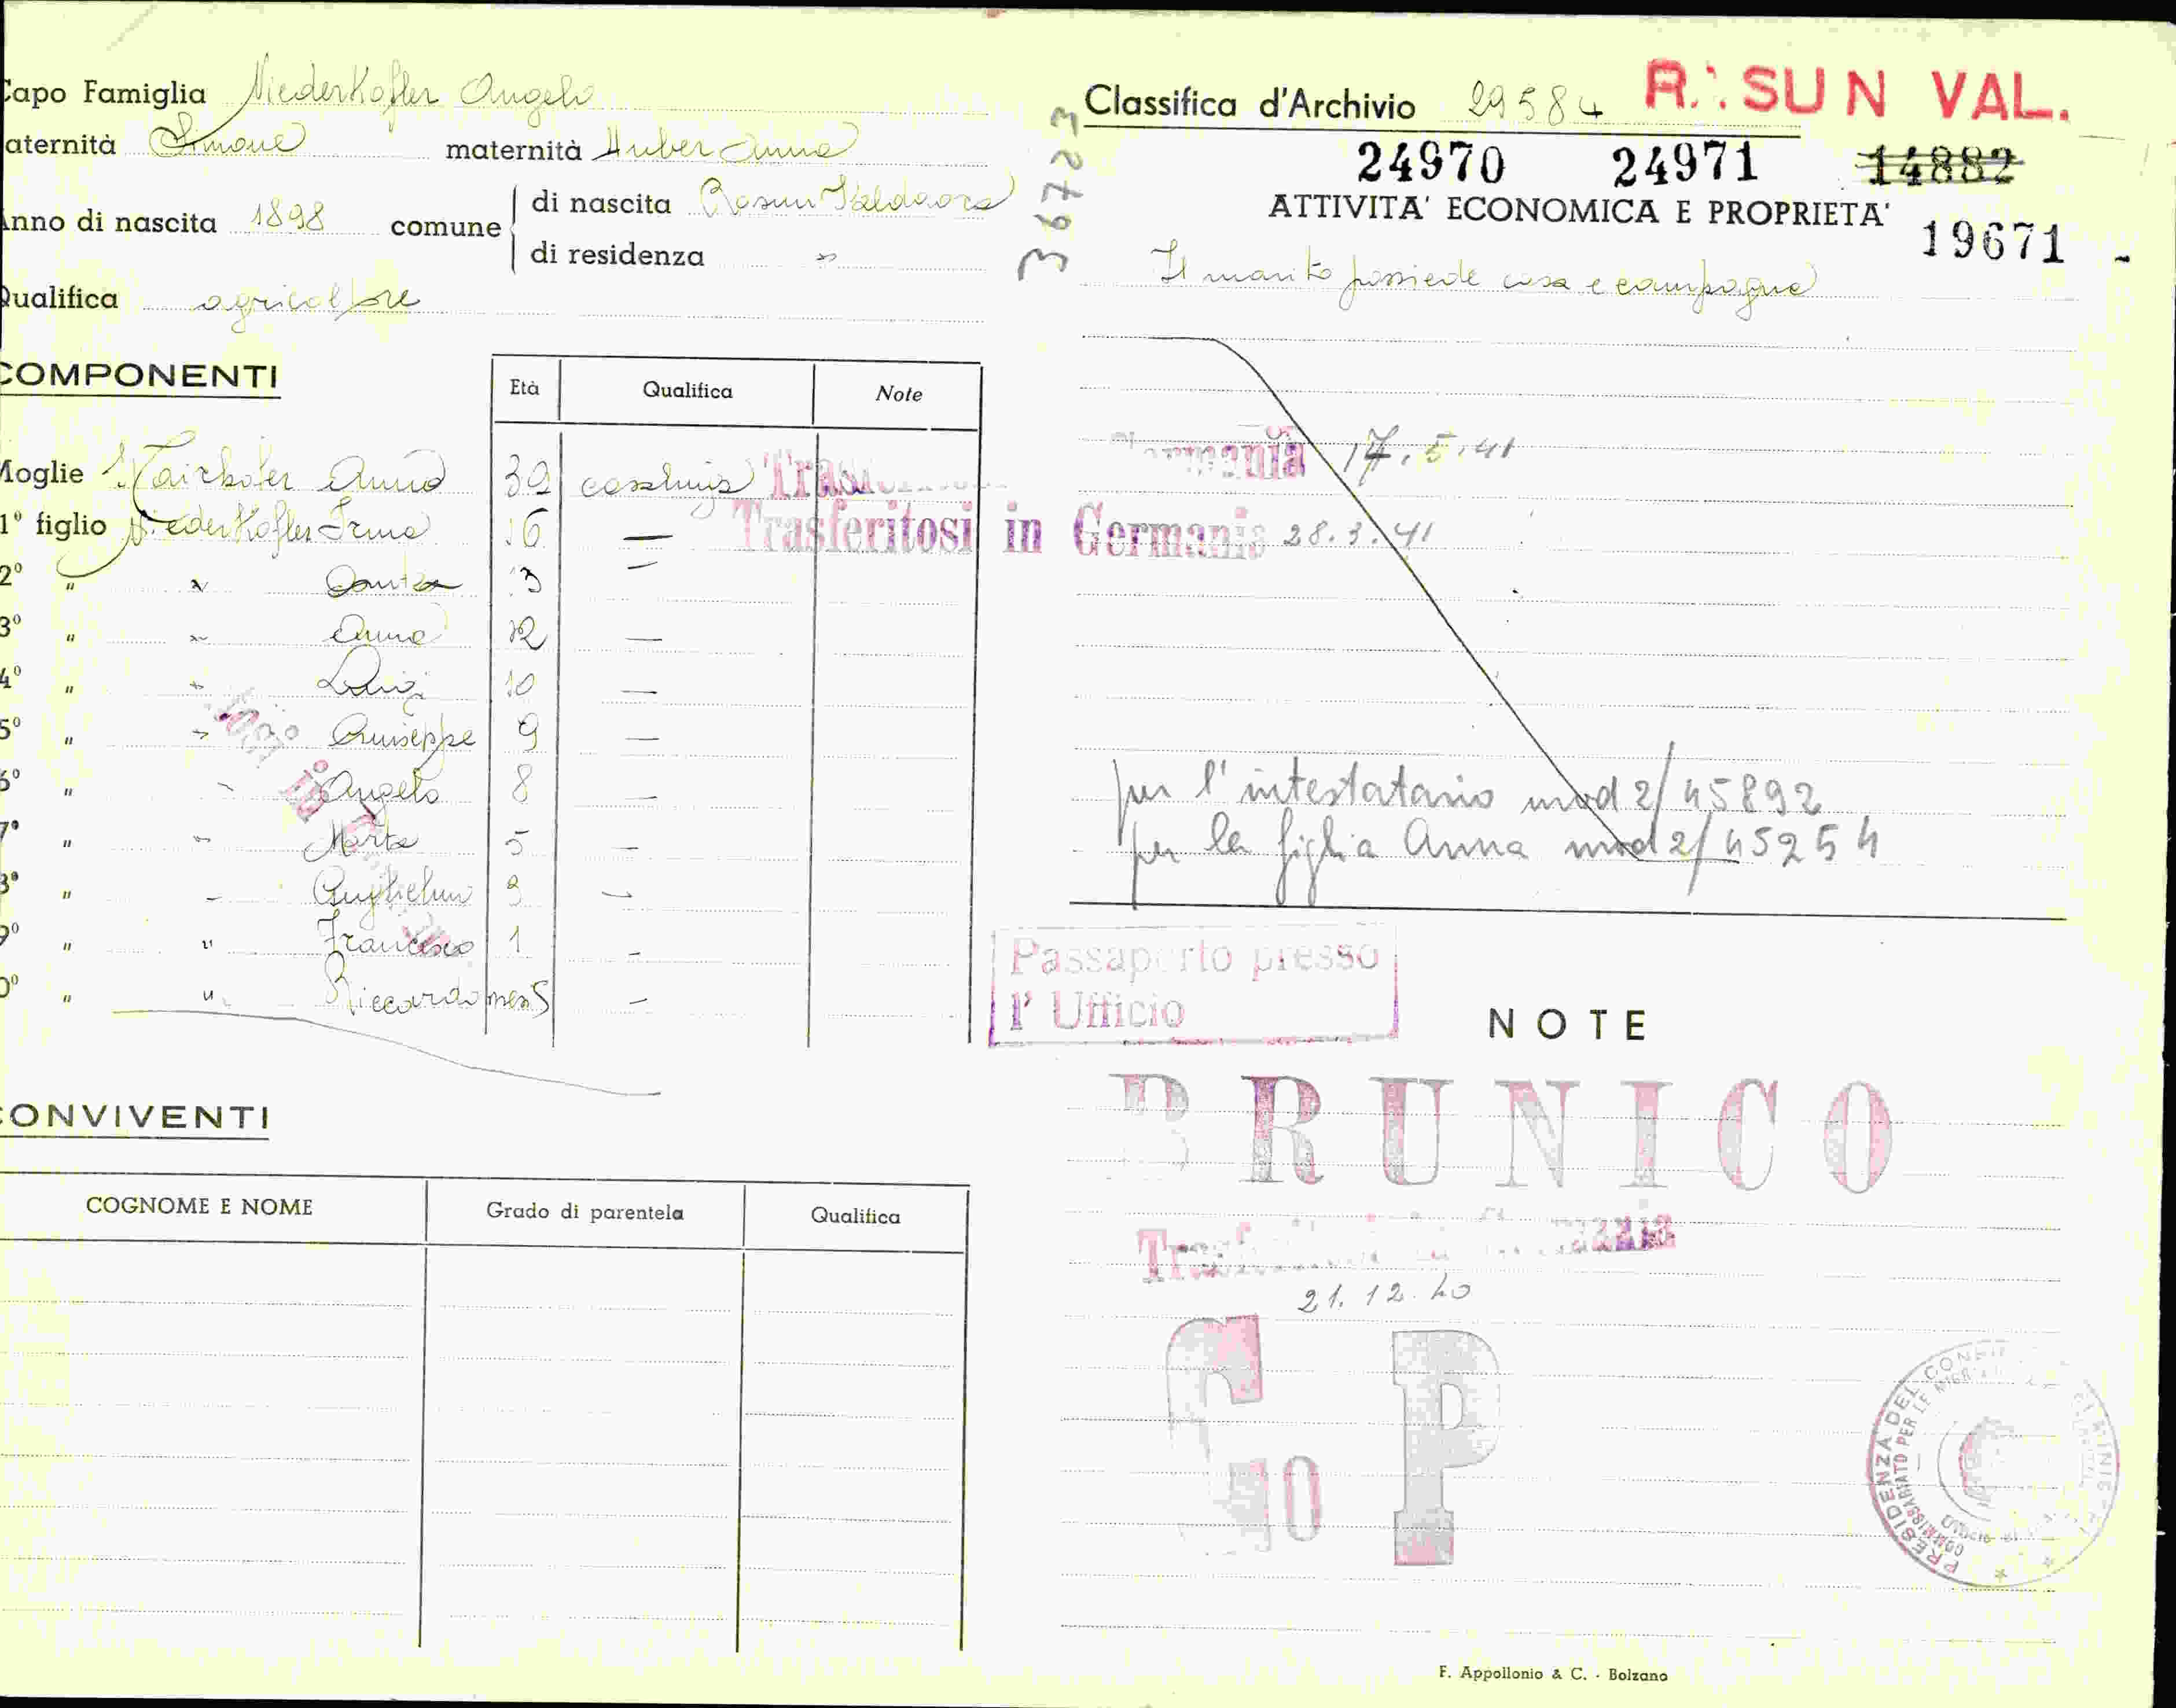 Capo Famiglia Niederkofler Angelo
aternità Simone maternità Huber Anna
Anno di nascita 1898 comune di nascita Rasun Valdaora
di residenza "
Qualifica agricoltore
COMPONENTI
Età Qualifica Note
Moglie Mairhofer Anna 39 casalinga
1° figlio Niederkofler Irma 16 —
2° " " 13 —
3° " " Anna 12 —
4° " " Luigi 10 —
5° " " Giuseppe 9 —
6° " " Angelo 8 —
7° " " Marta 5 —
8° " " Guglielmo 3 —
9° " " Francesco 1 —
0° " " Riccardo mesi 5 —
CONVIVENTI
COGNOME E NOME Grado di parentela Qualifica
36723
Classifica d'Archivio 29584 R. SUN VAL.
24970 24971 14882
ATTIVITA' ECONOMICA E PROPRIETA'
19671 -
Il marito possiede casa e campagna
17.5.41
Trasferitosi in Germania 28.3.41
per l'intestatario mod 2/45892
per la figlia Anna mod 2/45254
Passaporto presso
l' Ufficio
NOTE
BRUNICO
21.12.40
G P
10
PRESIDENZA DEL
COMMISSARIATO PER LE MIGR
F. Appollonio & C. - Bolzano